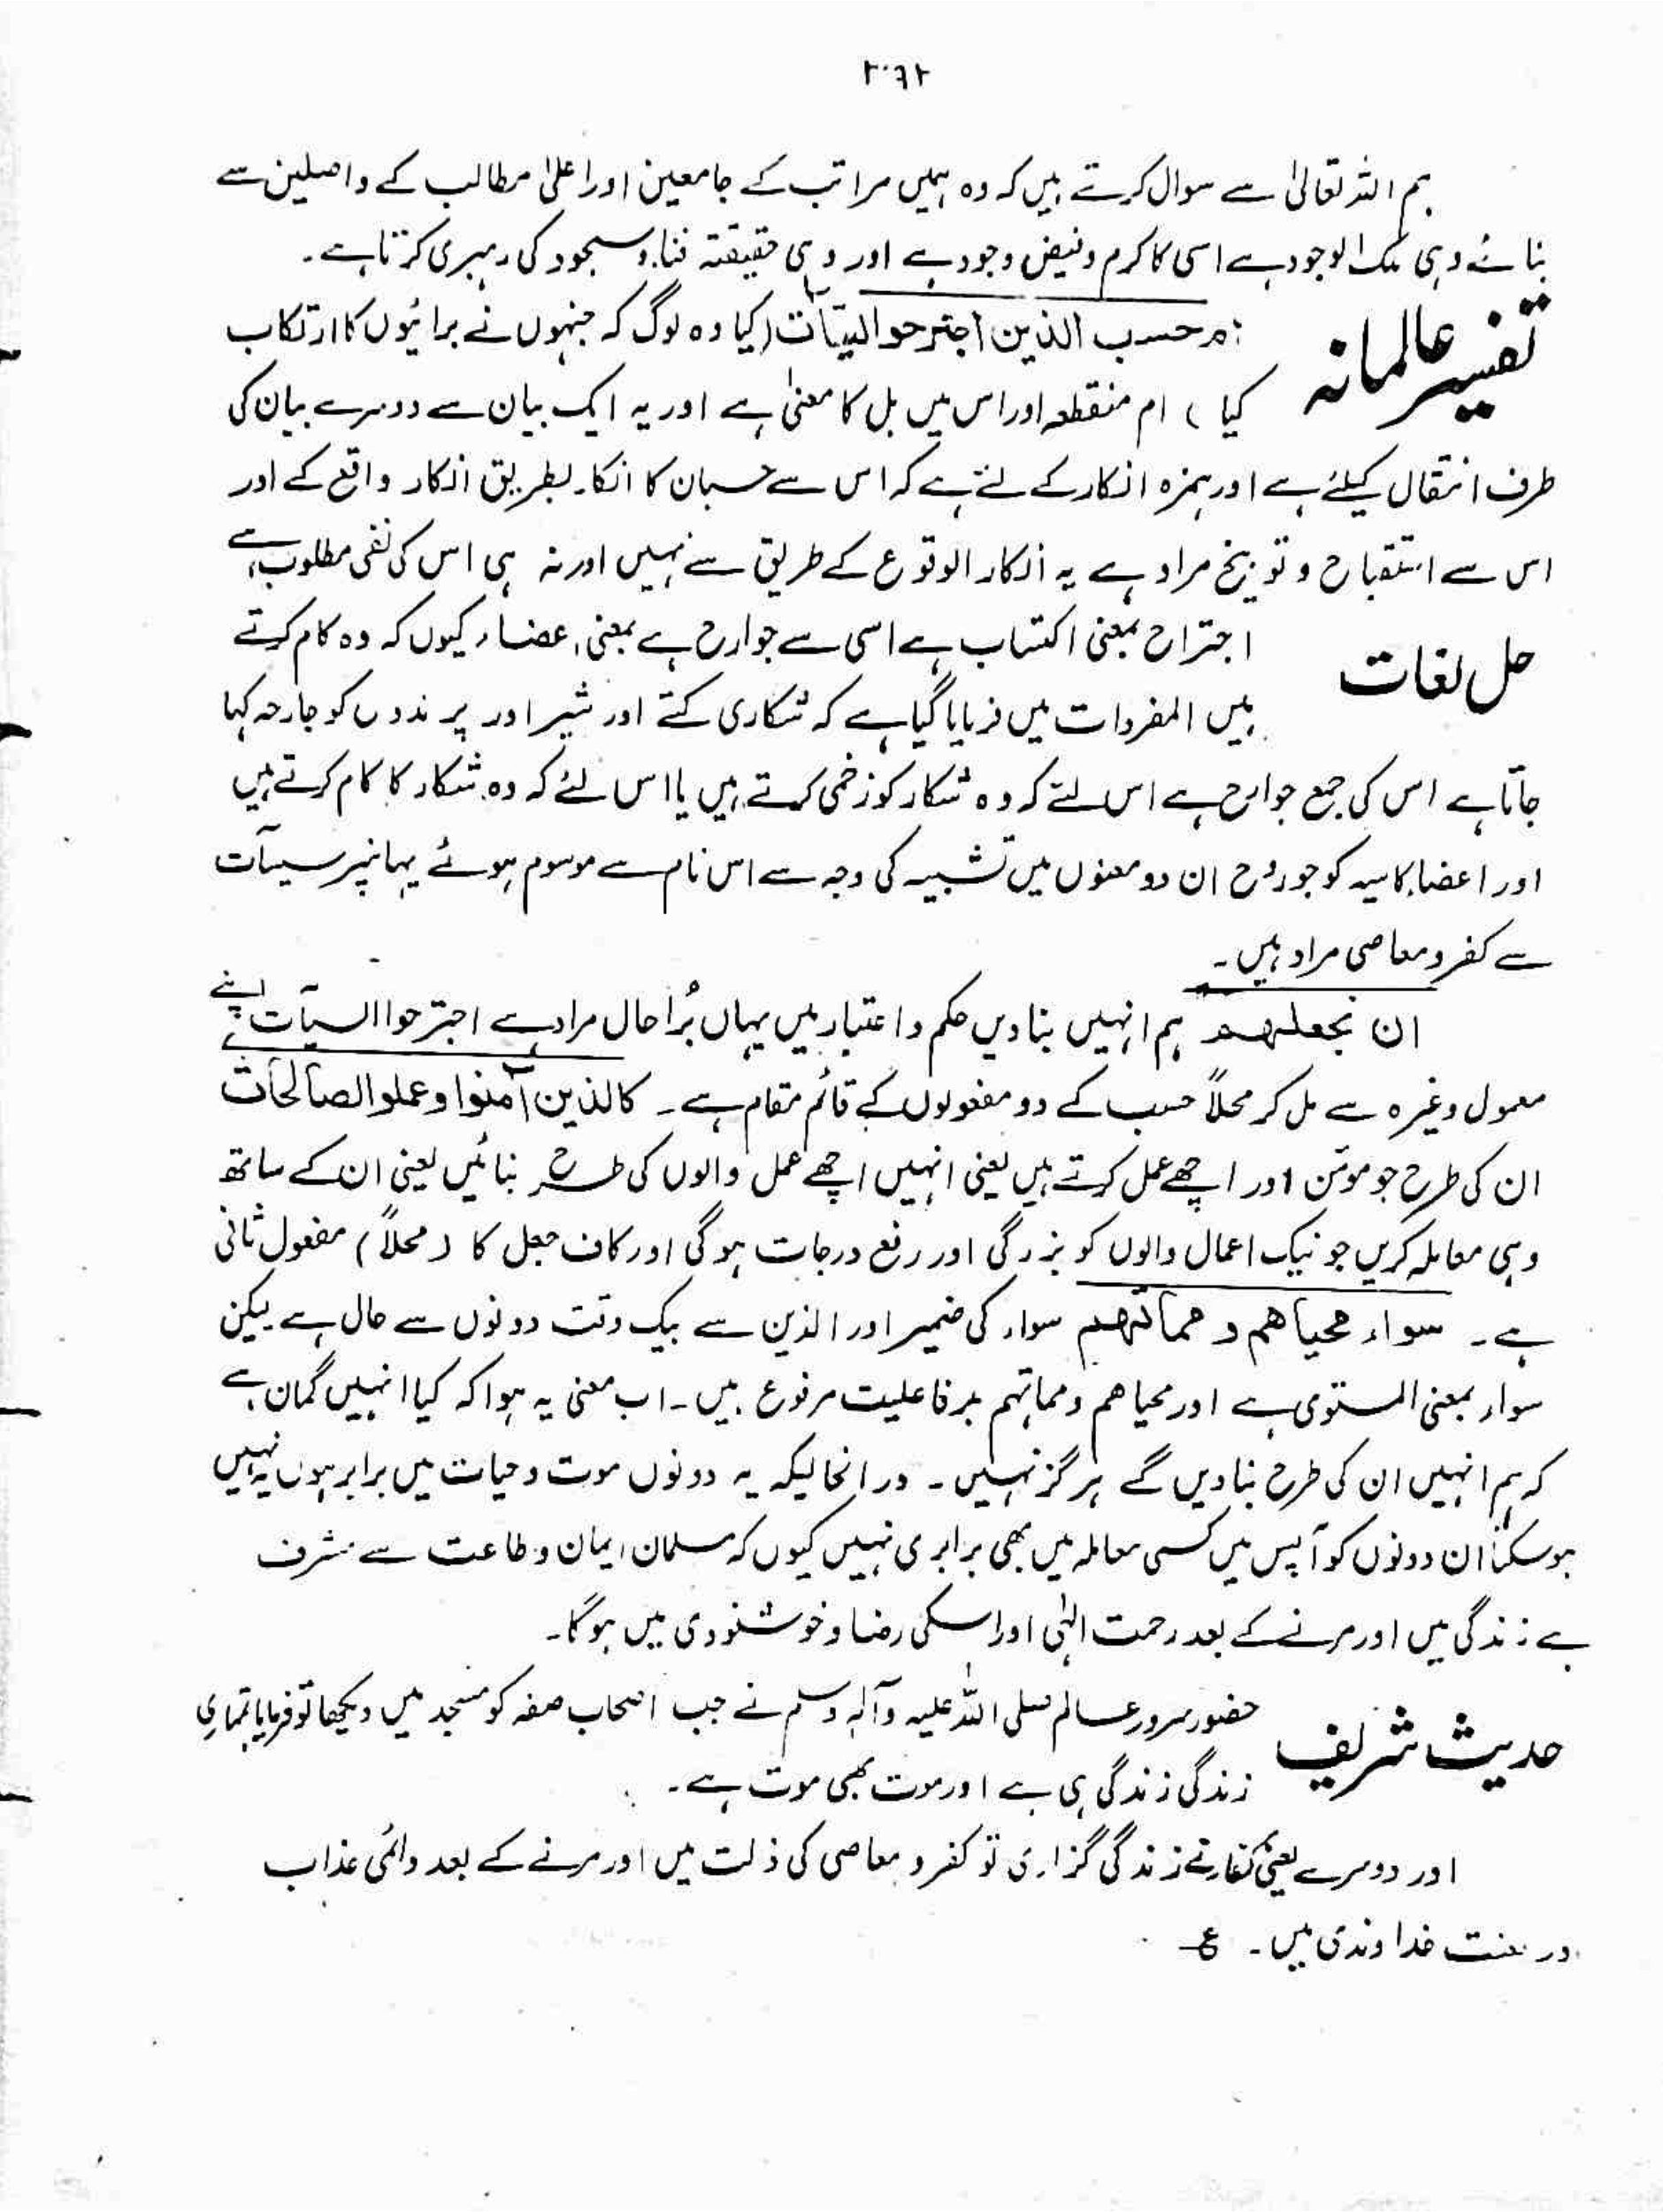 ہم اللہ تعالیٰ سے سوال کرتے ہیں کہ وہ ہمیں مراتب کے جامعین اور اعلیٰ مطالب کے واصلین سے
بنائے وہی ملک الوجود ہے اسی کا کرم و فیض وجود ہے اور وہی حقیقتہ فنا و سجود کی رہبری کرتا ہے۔
تفسیر عالمانہ
ام حسب الذین اجترحوا السیآت (کیا وہ لوگ کہ جنہوں نے برائیوں کا ارتکاب
کیا) ام منقطعہ اور اس میں بل کا معنیٰ ہے اور یہ ایک بیان سے دوسرے بیان کی
طرف انتقال کیلئے ہے اور ہمزہ انکار کے لئے ہے کہ اس سے حسبان کا انکار بطریق انکار واقع کے اور
اس سے استقباح و توبیخ مراد ہے یہ انکار الوقوع کے طریق سے نہیں اور نہ ہی اس کی نفی مطلوب ہے
حل لغات
اجتراح بمعنی اکتساب ہے اسی سے جوارح ہے بمعنی اعضاء کیوں کہ وہ کام کرتے
ہیں المفردات میں فرمایا گیا ہے کہ شکاری کتے اور شیر اور پرندوں کو جارحہ کہا
جاتا ہے اس کی جمع جوارح ہے اس لئے کہ وہ شکار کو زخمی کرتے ہیں یا اس لئے کہ وہ شکار کا کام کرتے ہیں
اور اعضاء کاسبہ کو جوارح ان دو معنوں میں تشبیہ کی وجہ سے اس نام سے موسوم ہوئے یہانپر سیآت
سے کفر و معاصی مراد ہیں۔
ان نجعلہم ہم انہیں بنا دیں حکم و اعتبار میں یہاں بُرا حال مراد ہے اجترحوا السیآت اپنے
معمول وغیرہ سے مل کر محلاً حسب کے دو مفعولوں کے قائم مقام ہے۔ کالذین آمنوا وعملوا الصالحات
ان کی طرح جو مومن اور اچھے عمل کرتے ہیں یعنی انہیں اچھے عمل والوں کی طرح بنائیں یعنی ان کے ساتھ
وہی معاملہ کریں جو نیک اعمال والوں کو بزرگی اور رفع درجات ہوگی اور کاف جعل کا (محلاً) مفعول ثانی
ہے۔ سواء محیاھم و مماتھم سواء کی ضمیر اور الذین سے بیک وقت دونوں سے حال ہے لیکن
سواء بمعنی المستوی ہے اور محیاھم ومماتہم بر فاعلیت مرفوع ہیں۔ اب معنی یہ ہوا کہ کیا انہیں گمان ہے
کہ ہم انہیں ان کی طرح بنا دیں گے ہرگز نہیں۔ درانحالیکہ یہ دونوں موت و حیات میں برابر ہوں یہ نہیں
ہو سکتا ان دونوں کو آپس میں کسی معاملہ میں بھی برابری نہیں کیوں کہ مسلمان ایمان و طاعت سے مشرف
ہے زندگی میں اور مرنے کے بعد رحمت الٰہی اور اسکی رضا و خوشنودی میں ہوگا۔
حدیث شریف
حضور سرور عالم صلی اللہ علیہ وآلہ وسلم نے جب اصحاب صفہ کو مسجد میں دیکھا تو فرمایا تمہاری
زندگی زندگی ہی ہے اور موت بھی موت ہے۔
اور دوسرے یعنی کفار نے زندگی گزاری تو کفر و معاصی کی ذلت میں اور مرنے کے بعد دائمی عذاب
اور لعنت خداوندی میں۔ ع